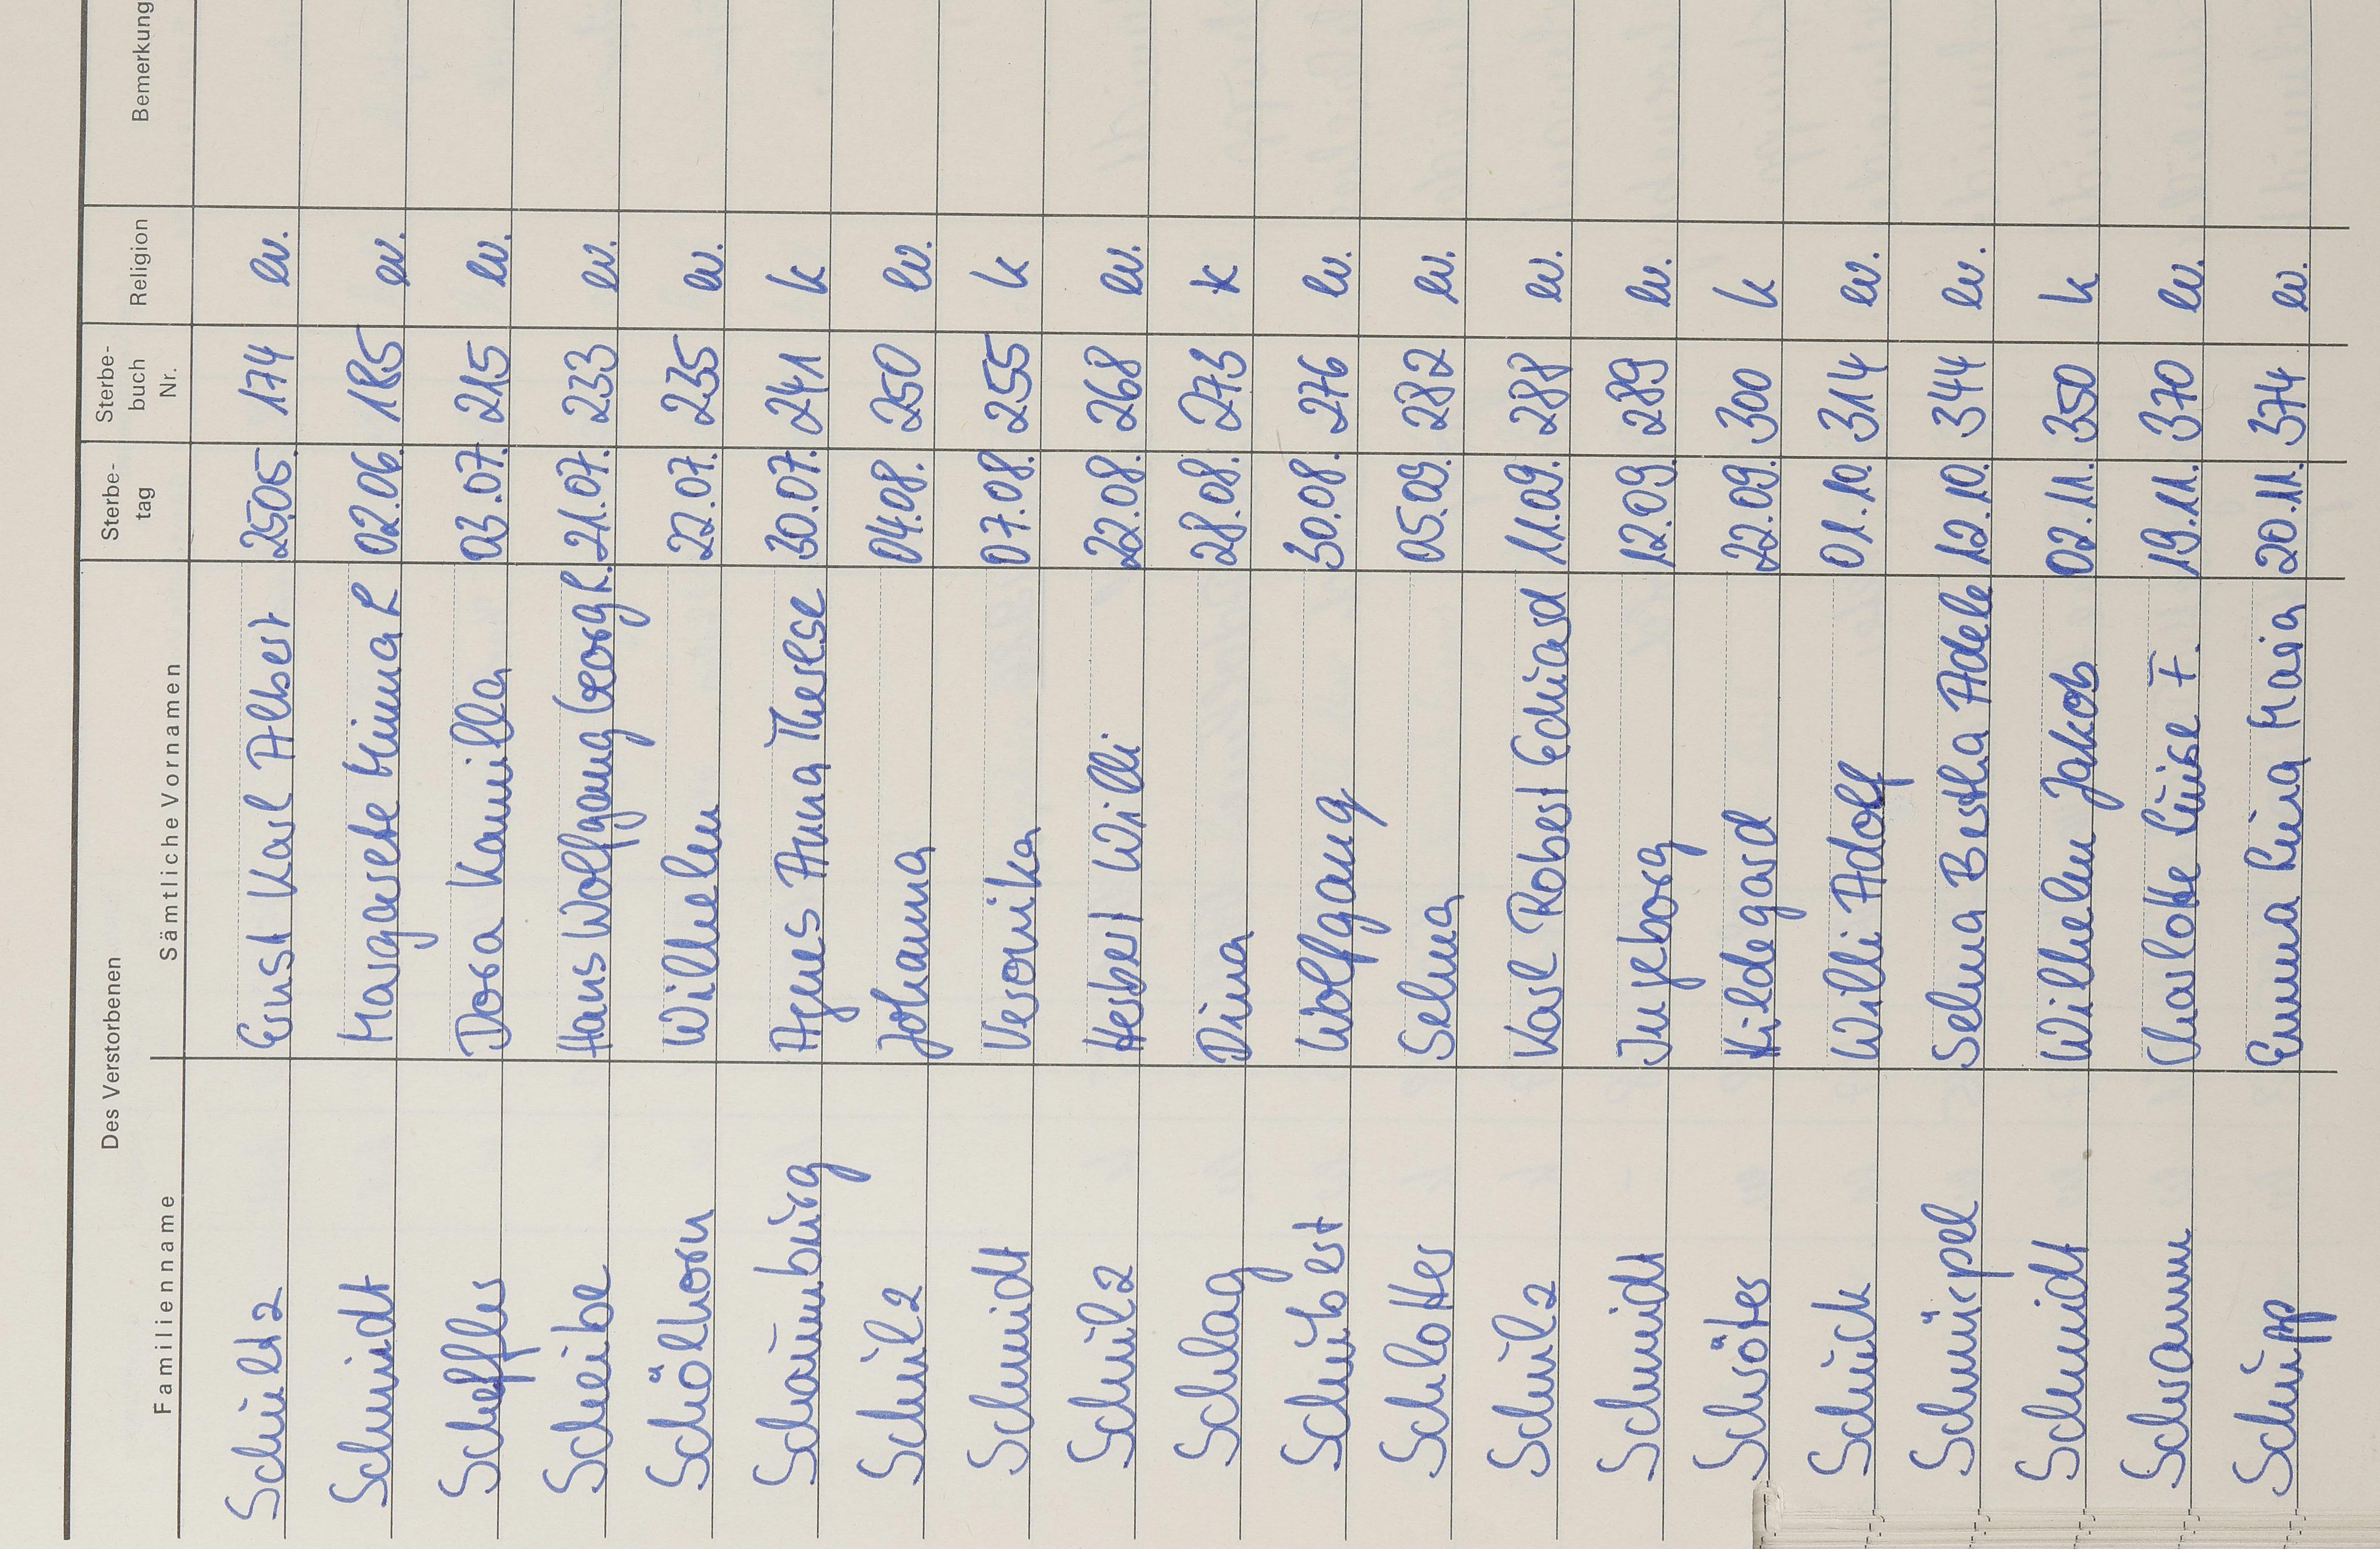 Des Verstorbenen Sterbe-tag Sterbe-buch Nr. Religion Bemerkung
Familienname Sämtliche Vornamen
Schultz Ernst Karl Albert 25.05. 174 ev.
Schmidt Margarete Minna L 02.06. 185 ev.
Scheffler Dora Kamilla 03.07. 215 ev.
Scheibe Hans Wolfgang Georg R. 21.07. 233 ev.
Schölhorn Wilhelm 22.07. 235 ev.
Schaumburg Agnes Anna Therese 30.07. 241 k
Schulz Johanna 04.08. 250 ev.
Schmidt Veronika 07.08. 255 k
Schulz Herbert Willi 22.08. 268 ev.
Schlag Dina 28.08. 273 k
Schubert Wolfgang 30.08. 276 ev.
Schlotter Selma 05.09. 282 ev.
Schulz Karl Robert Eduard 11.09. 288 ev.
Schmidt Ingeborg 12.09. 289 ev.
Schröter Hildegard 22.09. 300 k
Schuch Willi Adolf 01.10. 314 ev.
Schnürpel Selma Bertha Adele 12.10. 344 ev.
Schmidt Wilhelm Jakob 02.11. 350 k
Schramm Charlotte Luise F. 19.11. 370 ev.
Schupp Emma Lina Maria 20.11. 374 ev.